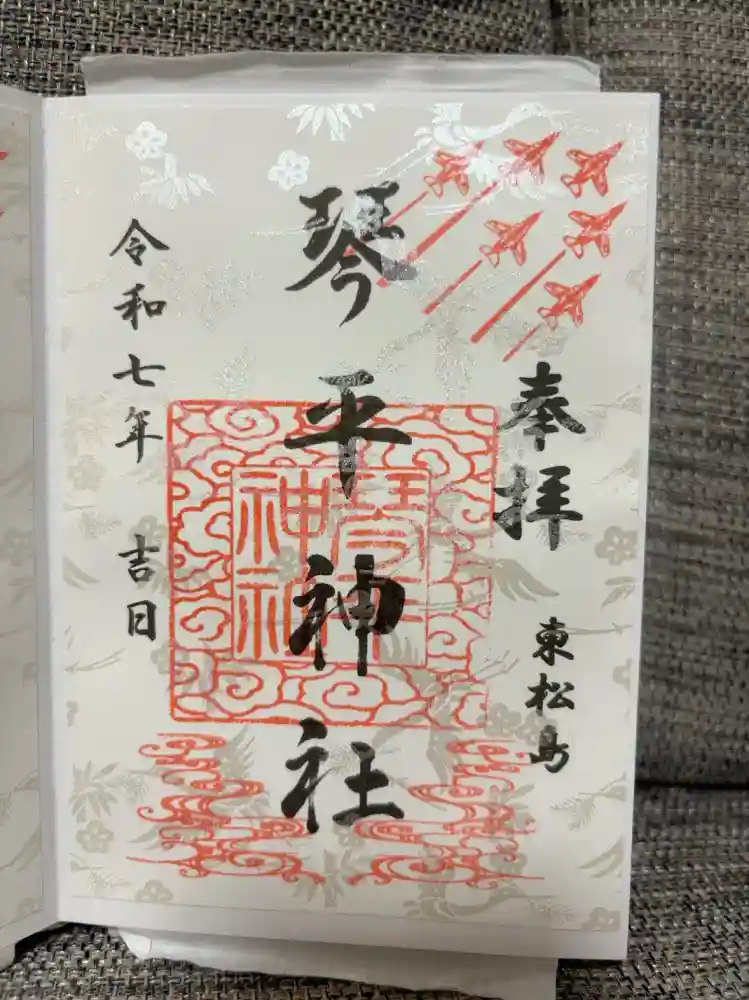 奉拝
東松島
琴平神社
琴平
神社
令和七年 吉日